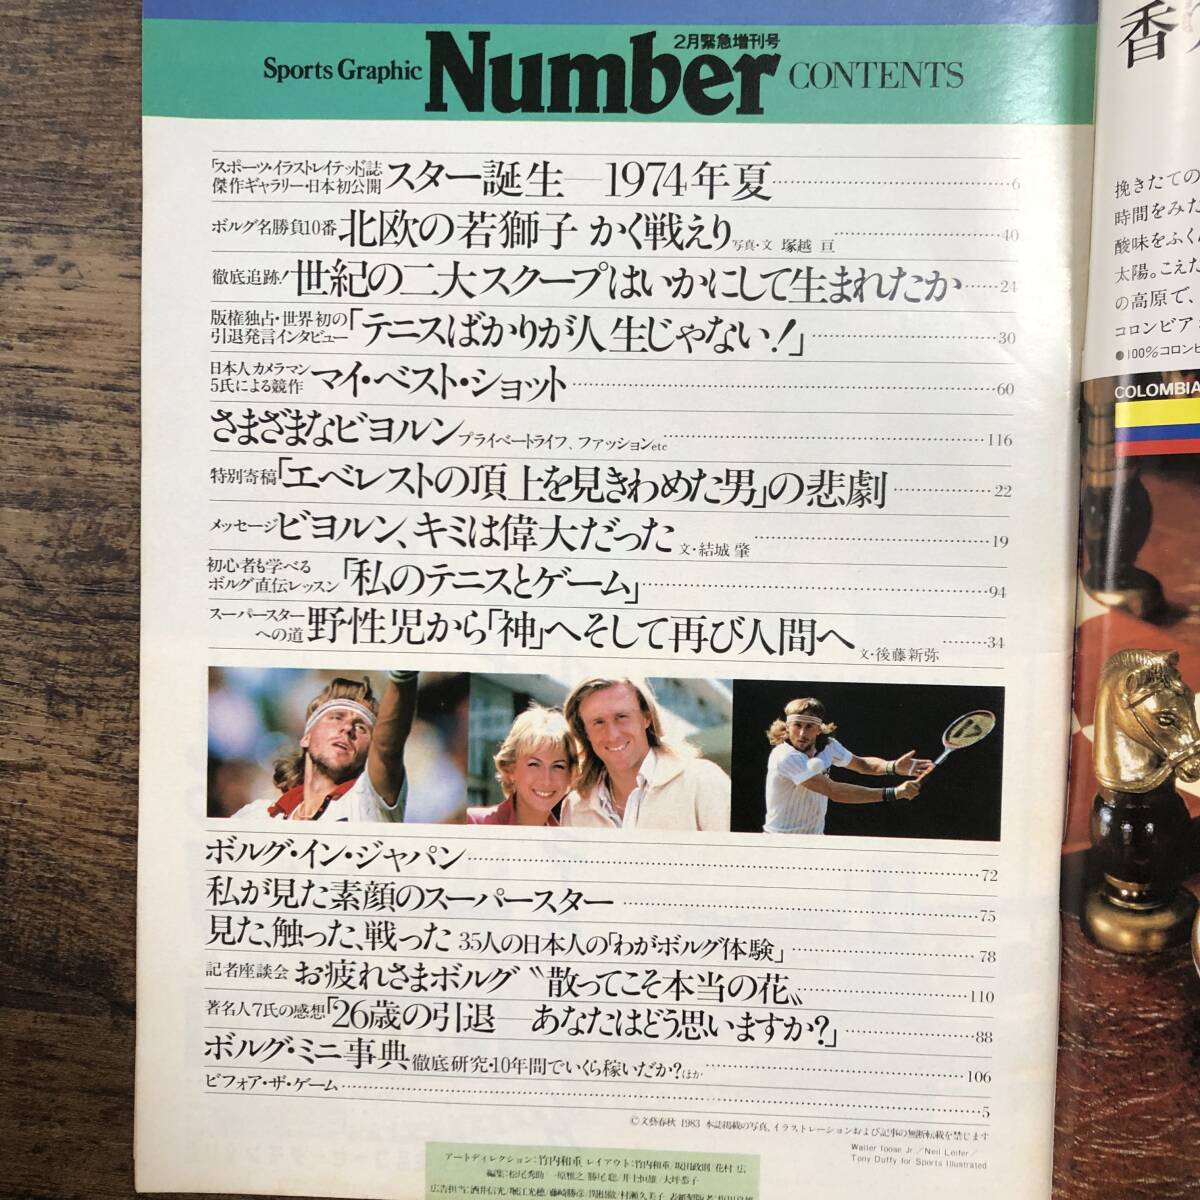 2月緊急増刊号
Sports Graphic Number CONTENTS
「スポーツ・イラストレイテッド」誌
傑作ギャラリー・日本初公開 スター誕生―1974年夏 6
ボルグ名勝負10番 北欧の若獅子 かく戦えり 写真・文 塚越 亘 40
徹底追跡! 世紀の二大スクープはいかにして生まれたか 24
版権独占・世界初の
引退発言インタビュー 「テニスばかりが人生じゃない!」 30
日本人カメラマン
5氏による競作 マイ・ベスト・ショット 60
さまざまなビヨルン プライベートライフ、ファッションetc 116
特別寄稿 「エベレストの頂上を見きわめた男」の悲劇 22
メッセージ ビヨルン、キミは偉大だった 文・結城 肇 19
初心者も学べる
ボルグ直伝レッスン 「私のテニスとゲーム」 94
スーパースター
への道 野性児から「神」へそして再び人間へ 文・後藤新弥 34
ボルグ・イン・ジャパン 72
私が見た素顔のスーパースター 75
見た、触った、戦った 35人の日本人の「わがボルグ体験」 78
記者座談会 お疲れさまボルグ 〝散ってこそ本当の花〟 110
著名人7氏の感想 「26歳の引退―あなたはどう思いますか?」 88
ボルグ・ミニ事典 徹底研究・10年間でいくら稼いだか?ほか 106
ビフォア・ザ・ゲーム 5
©文藝春秋 1983 本誌掲載の写真、イラストレーションおよび記事の無断転載を禁じます
Walter Iooss Jr./Neil Leifer/
Tony Duffy for Sports Illustrated
アートディレクション:竹内和重 レイアウト:竹内和重/坂川政則/花村 広
編集:松尾秀助
香
挽きたての
時間をみた
酸味をふく
太陽。こえた
の高原で、
コロンビア
●100%コロン
COLOMBIA